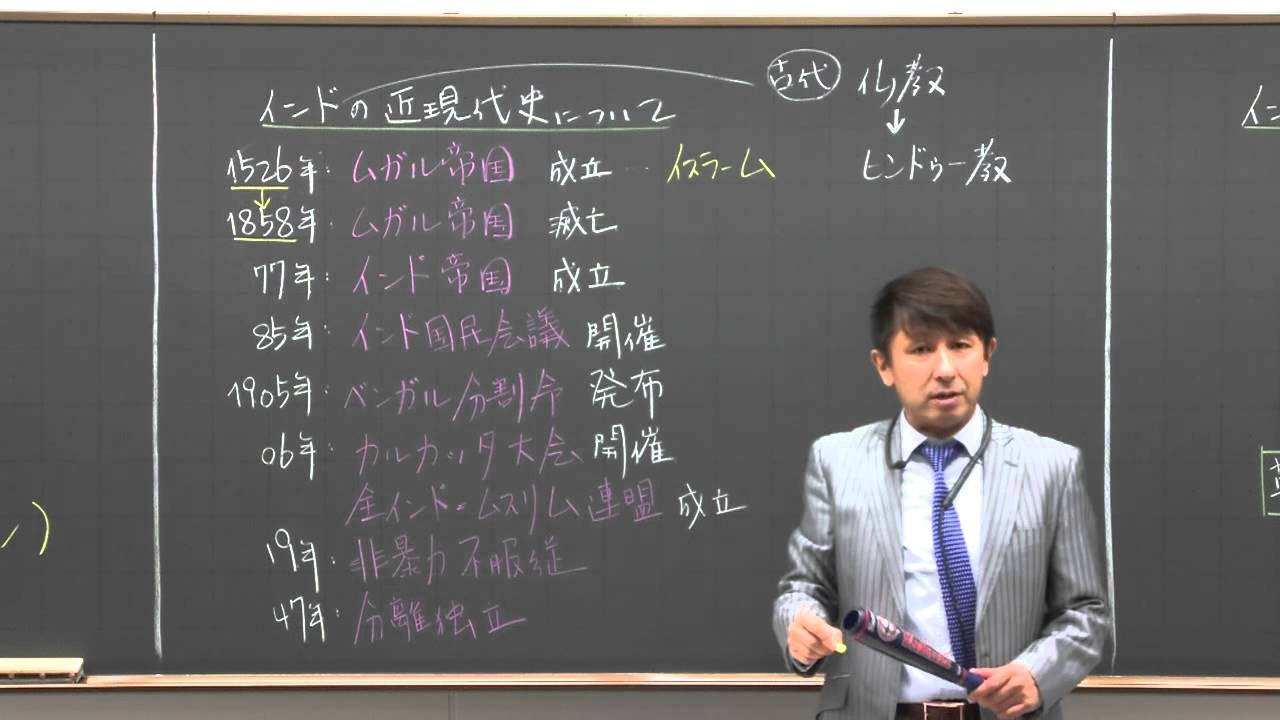 インドの近現代史について
古代 仏教
↓
ヒンドゥー教
1526年: ムガル帝国 成立 … イスラーム
↓
1858年: ムガル帝国 滅亡
77年: インド帝国 成立
85年: インド国民会議 開催
1905年: ベンガル分割令 発布
06年: カルカッタ大会 開催
全インド=ムスリム連盟 成立
19年: 非暴力不服従
47年: 分離独立
イン